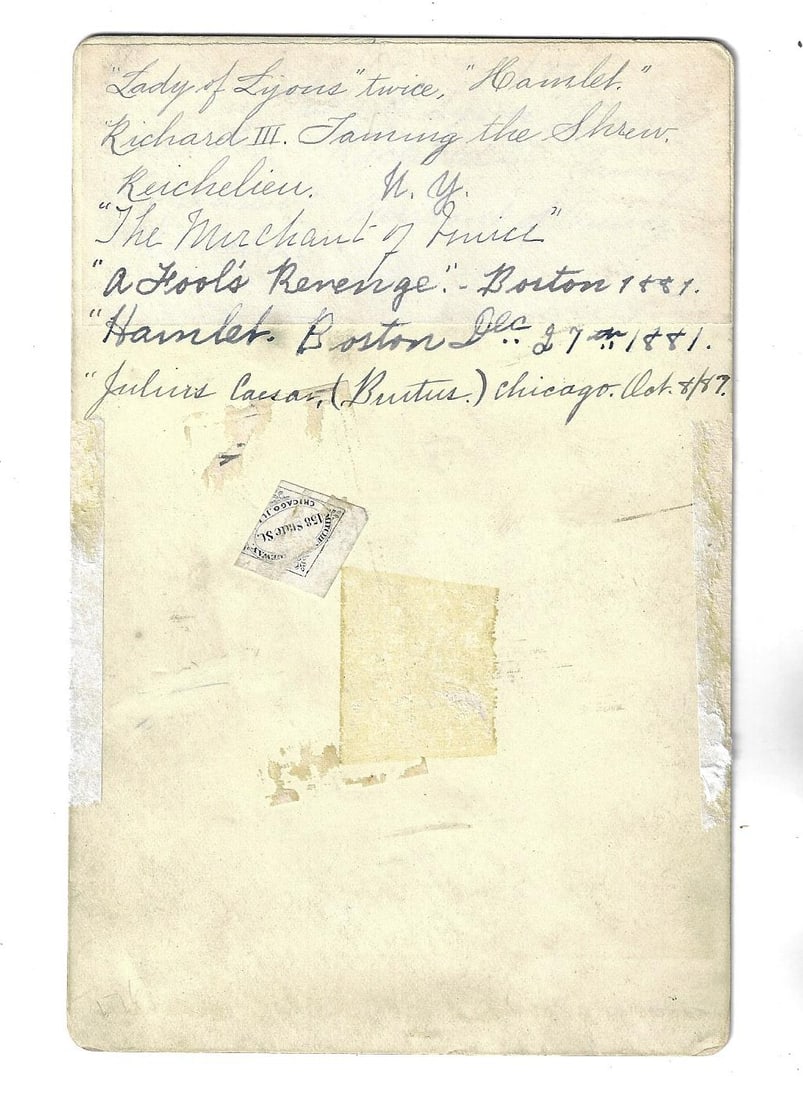 "Lady of Lyons" twice, "Hamlet."
Richard III. Taming the Shrew.
Reichelieu. N. Y.
"The Merchant of Venice"
"A Fool's Revenge". - Boston 1881.
"Hamlet. Boston Dec. 27th 1881.
"Julius Caesar, (Brutus.) Chicago. Oct. 8/87.
CHICAGO, ILL
158 State St.